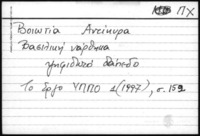 ΠΧ
Βοιωτία Αντίκυρα
Βασιλική νάρθηκα
ψηφιδωτό δάπεδο
Το έργο ΥΠΠΟ 1(1997), σ. 152